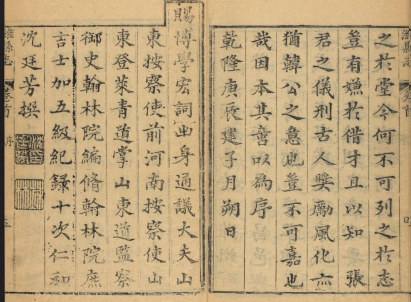 之於堂今何不可列之於志
豈有嫌於借才且以知張
君之儀刑古人獎勵風化亦
猶韓公之意也豈不可嘉也
哉因本其意以為序
乾隆庚辰建子月朔日
賜博學宏詞出身通議大夫山
東按察使前河南按察使山
東登萊青道掌山東道監察
御史翰林院編脩翰林院庶
吉士加五級紀錄十次仁和
沈廷芳撰
濰縣志
序